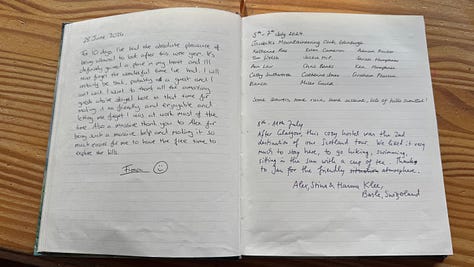 28 June 2024
For 10 days I've had the absolute pleasure of
being allowed to look after this wee gem. It's
definitely gained a place in my heart and I'll
never forget the wonderful time I've had. I will
certainly be back, probably as a guest and I
can't wait. I want to thank all the amazing
guests who stayed here in that time for
making it so friendly and enjoyable and
letting me forget I was at work most of the
time. Also a massive thank you to Alex for
being such a massive help and making it so
much easier for me to have the free time to
explore the hills.
Fiona
5th - 7th July 2024
Mountaineering Club, Edinburgh
Katherine Ross Euan Cameron
Tim Welds
Ann Chris Banks Ken Humphries
Cathy Catherine Jones Graham Pearson
Bianca
Some Munros, some rain, some midges, lots of hills climbed!
8th - 11th July
After Glasgow, this cozy hostel was the 2nd
destination of our Scotland tour. We liked it very
much to stay here, to go hiking, swimming,
sitting in the sun with a cup of tea. Thanks
to Jan for the friendly atmosphere.
Alex, Stina & Hanna Klee,
Basle, Switzerland